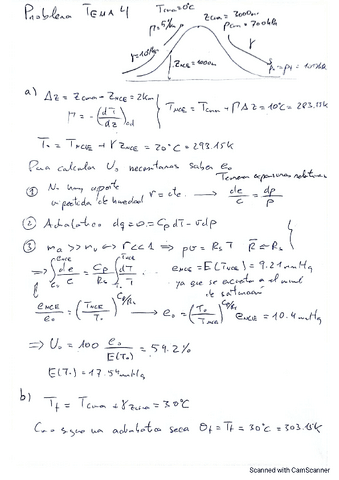 Problema TEMA 4
T_cima = 0°C
Γ = 5°/km
z_cima = 3000m
P_cima = 700hPa
γ = 10°/km
γ
z_NCE = 1000m
a) Δz = z_cima - z_NCE = 2km
T_NCE = T_cima + Γ Δz = 10°C = 283.15K
Γ = -(dT/dz)_ad
T_0 = T_NCE + γ z_NCE = 20°C = 293.15K
Para calcular U_0 necesitamos saber e_0
① No hay aporte o pérdida de humedad r = cte. → de/e = dp/p
② Adiabático dq = 0 = C_p dT - v dp
③ m_a >> m_v ↔ r << 1 ⇒ pv = R_s T R ≈ R_s
⇒ ∫_{e_0}^{e_NCE} de/e = C_p/R_s ∫_{T_0}^{T_NCE} dT/T ... e_NCE = E(T_NCE) = 9.21 mmHg
ya que se encuentra a el nivel
de saturación
e_NCE/e_0 = (T_NCE/T_0)^{C_p/R_s} → e_0 = (T_0/T_NCE)^{C_p/R_s} e_NCE = 10.4 mmHg
⇒ U_0 = 100 e_0/E(T_0) = 59.2%
E(T_0) = 17.54 mmHg
b) T_f = T_cima + γ z_cima = 30°C
Como sigue una adiabática seca θ_f = T_f = 30°C = 303.15K
Scanned with CamScanner